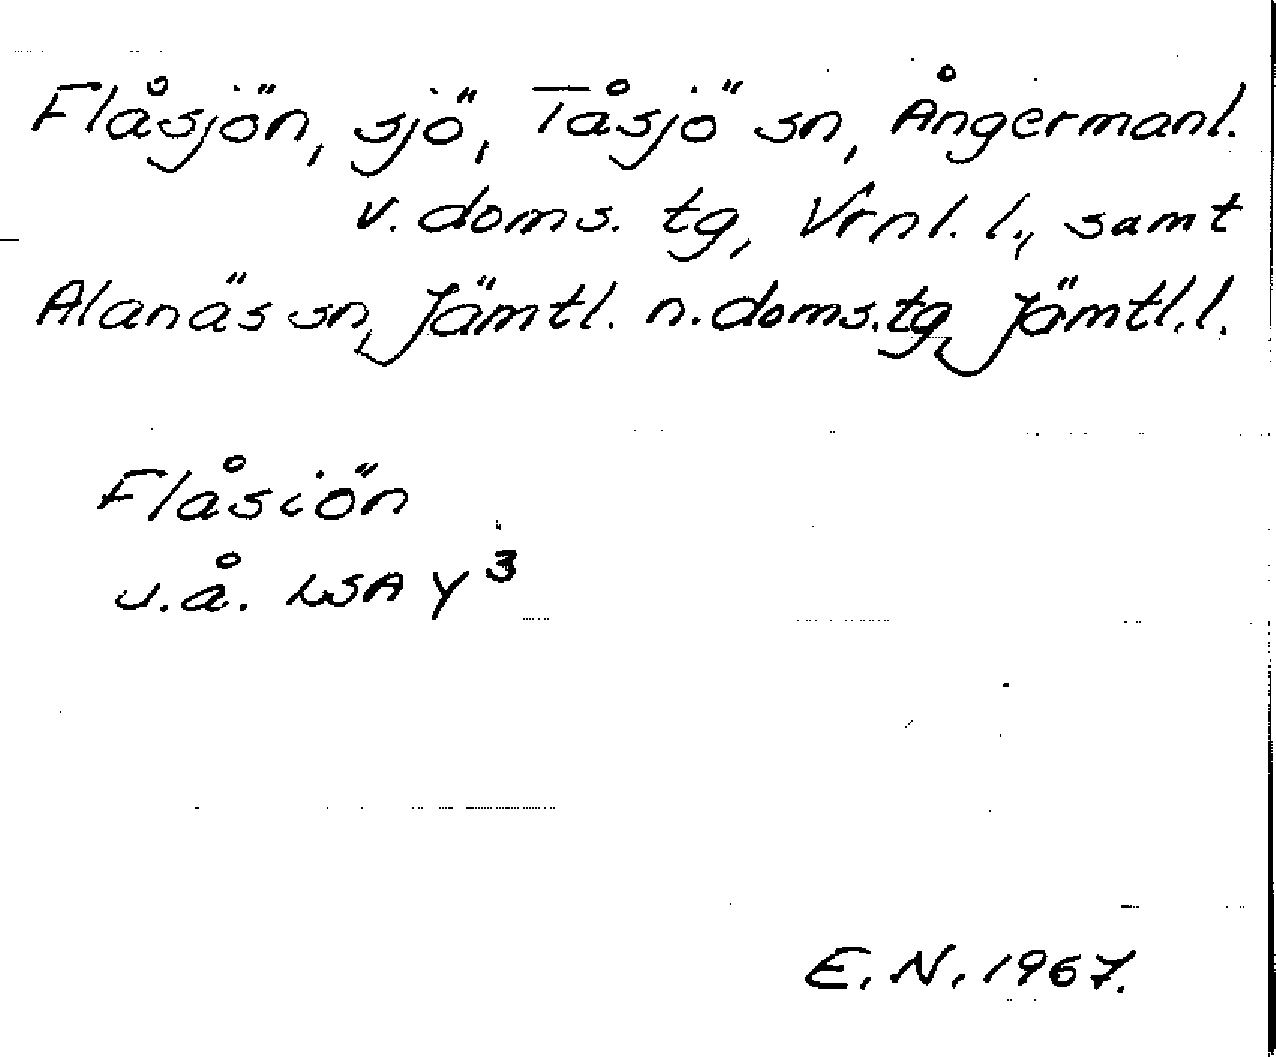 Flåsjön, sjö, Tåsjö sn, Ångermanl.
v. doms. tg, Vrnl. l., samt
Alanäs sn, Jämtl. n. doms. tg, Jämtl. l.
Flåsiön
u. å. LSA Y³
E. N. 1967.